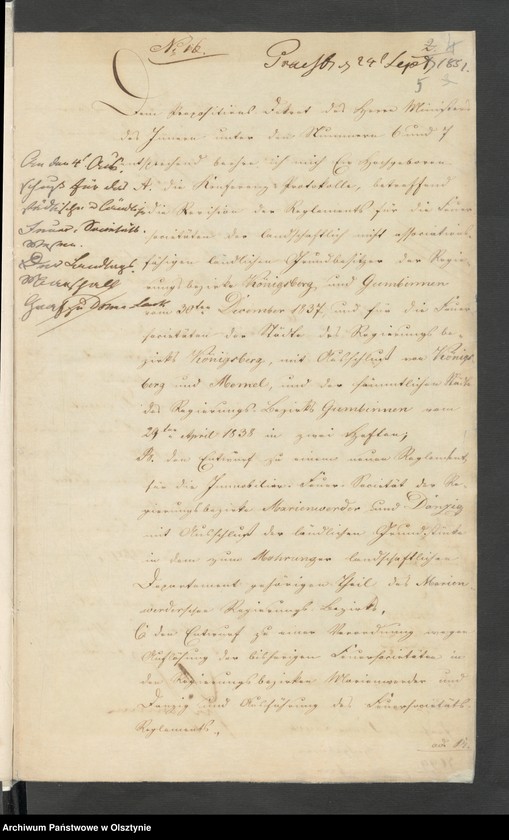 No 16.
Praest. d 24t Sept 1851.
2
5
Dem Propositions Dekret des Herrn Ministers
des Innern unter den Nummern 6 und 7
entsprechend beehre ich mich Ew Hochgeboren
A. die Konferenz-Protokolle, betreffend
die Revision der Reglements für die Feuer
societäten der landschaftlich nicht associations
fähigen ländlichen Grundbesitzer der Regie
rungsbezirke Königsberg und Gumbinnen
vom 30ten December 1837, und für die Feuer
societäten der Städte des Regierungsbe
zirks Königsberg, mit Ausschluß von Königs
berg und Memel, und der sämmtlichen Städte
des Regierungs Bezirks Gumbinnen vom
29ten April 1838 in zwei Heften;
B. den Entwurf zu einem neuen Reglement
für die Immobiliar-Feuer-Societät der Re
gierungsbezirke Marienwerder und Danzig
mit Ausschluß der ländlichen Grundstücke
in dem zum Mohrunger landschaftlichen
Departement gehörigen Theil des Marien
werderschen Regierungs Bezirks,
C. den Entwurf zu einer Verordnung wegen
Auflösung der bisherigen Feuersocietäten in
den Regierungsbezirken Marienwerder und
Danzig und Ausführung des Feuersocietäts-
Reglements,
An den 4t Aus
schuß für das
städtische u ländliche
Feuer-Societäts-
Wesen.
Der Landtags-
Marschall
Graf zu Dohna Lauck
Archiwum Państwowe w Olsztynie